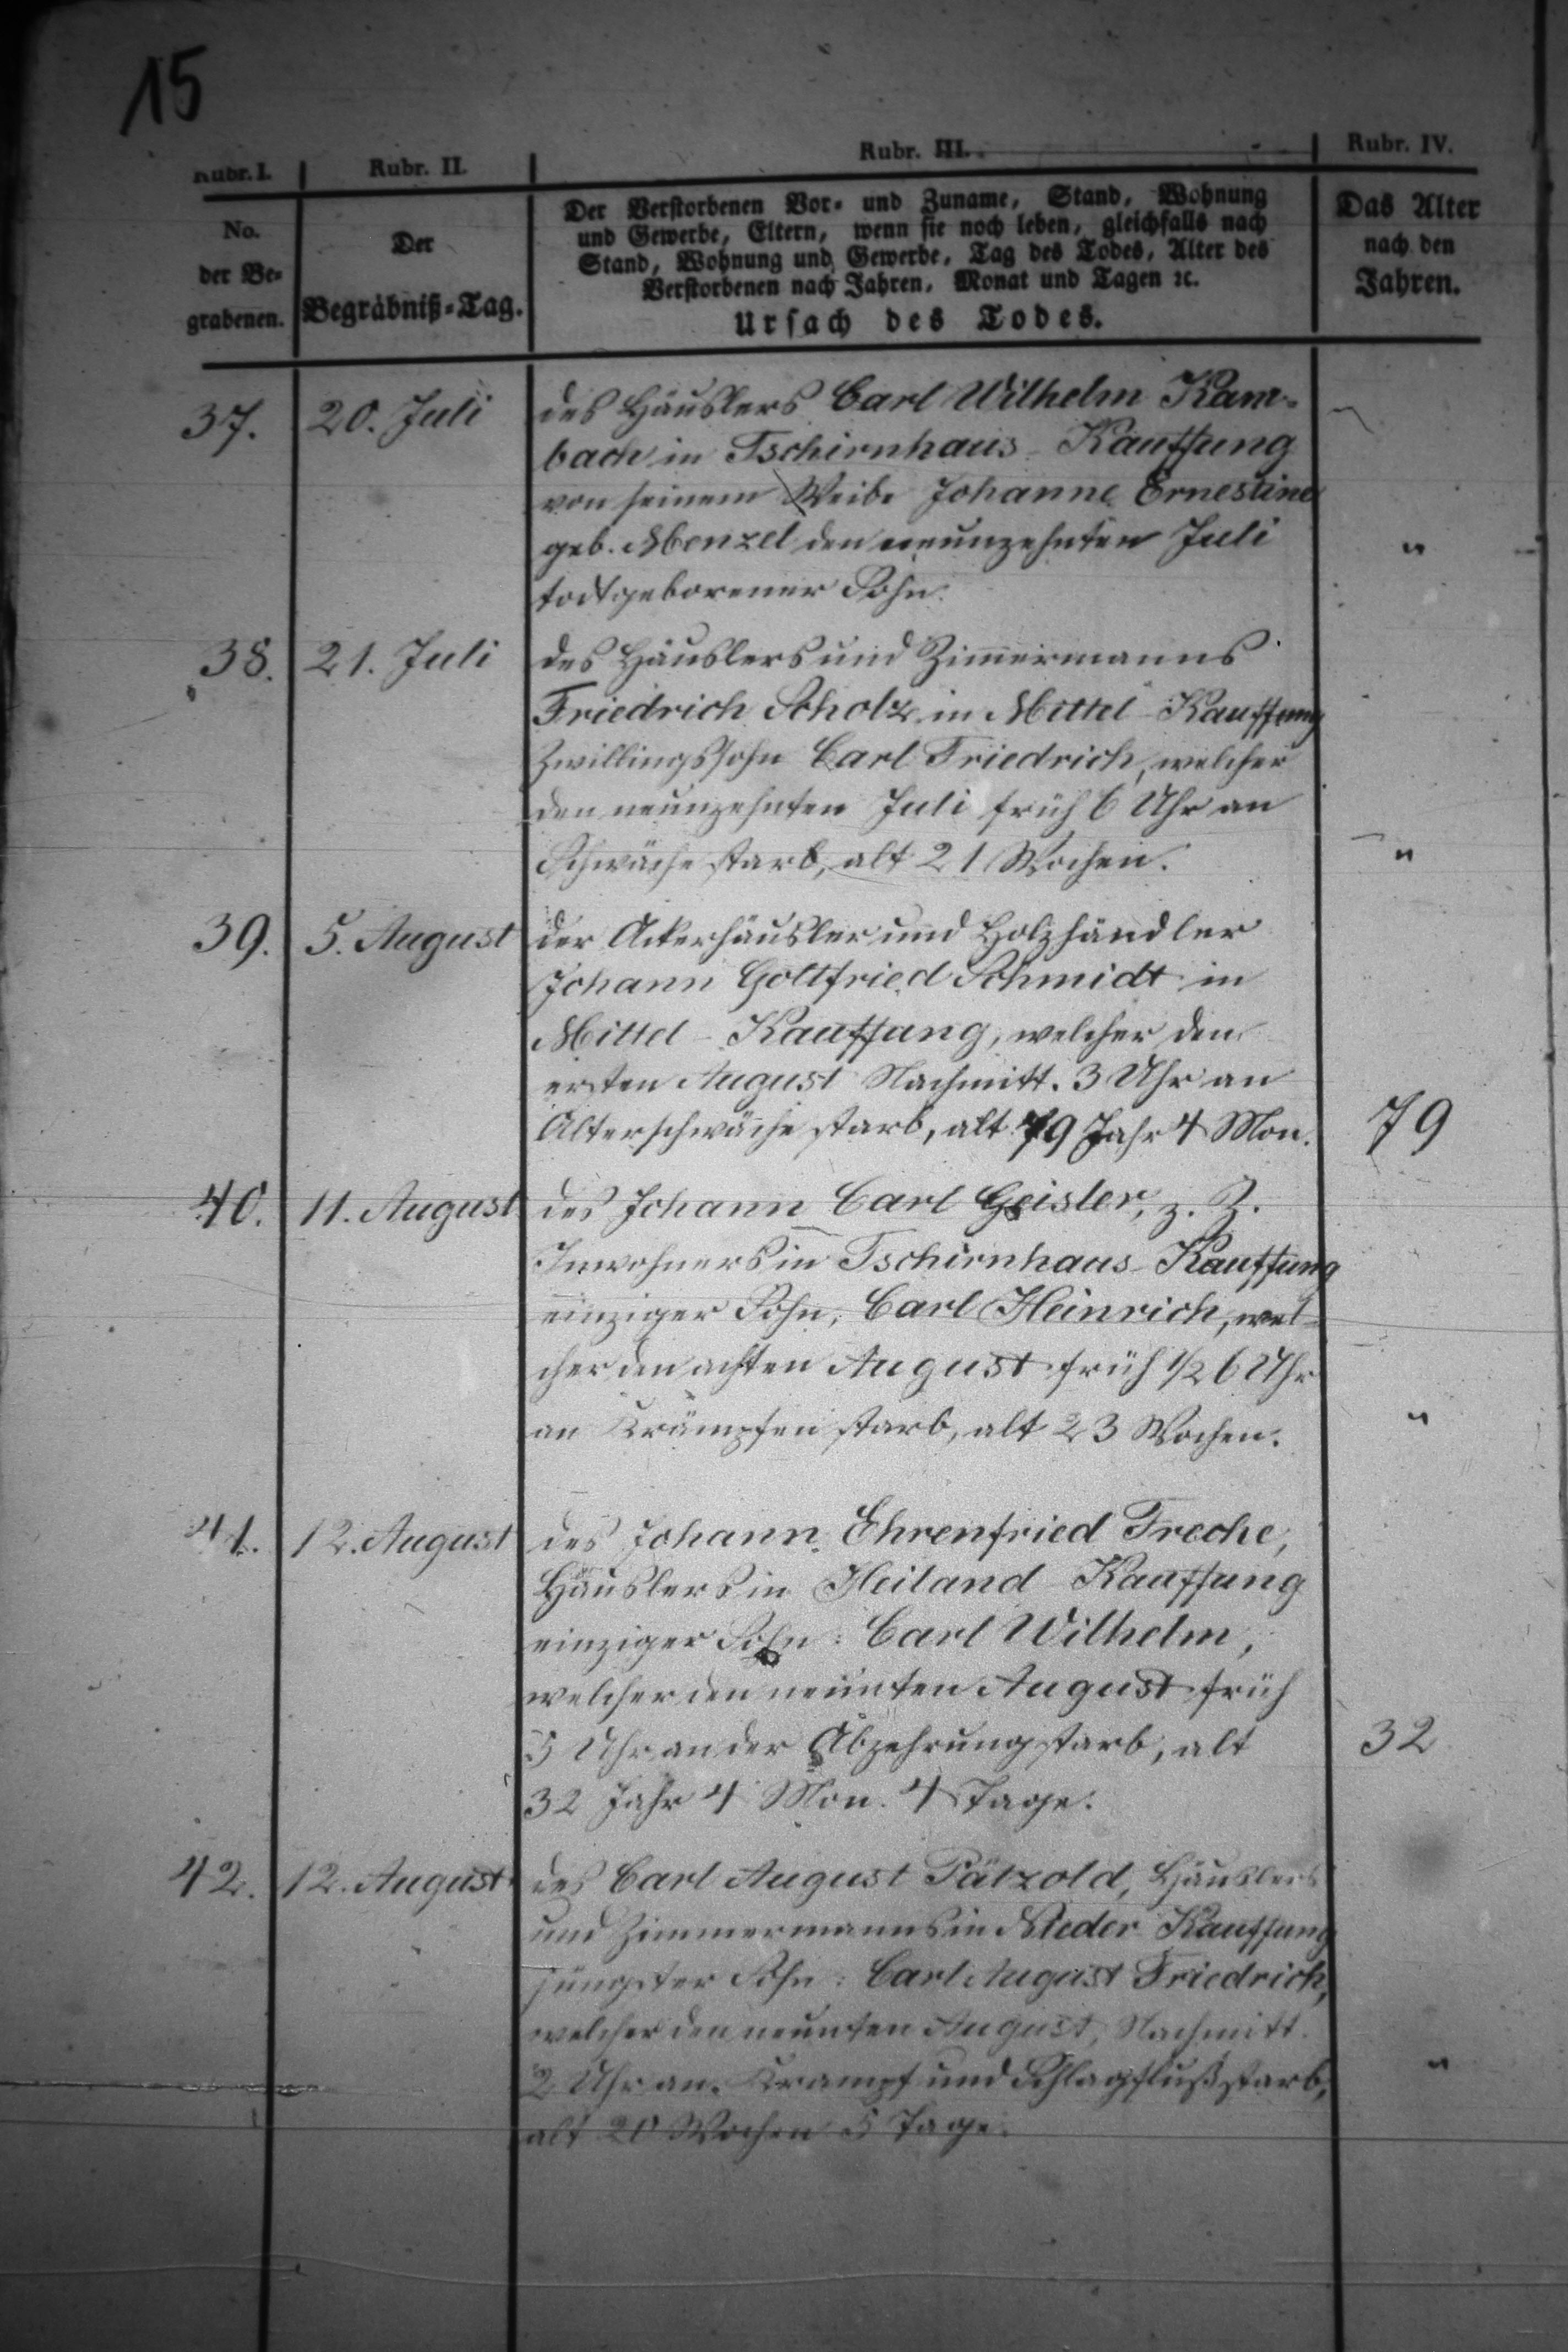 15
Rubr. I. Rubr. II. Rubr. III. Rubr. IV.
No. der Be- grabenen.
Der Begräbniß-Tag.
Der Verstorbenen Vor- und Zuname, Stand, Wohnung
und Gewerbe, Eltern, wenn sie noch leben, gleichfalls nach
Stand, Wohnung und Gewerbe, Tag des Todes, Alter des
Verstorbenen nach Jahren, Monat und Tagen ꝛc.
Ursach des Todes.
Das Alter
nach den
Jahren.
37. 20. Juli des Häuslers Carl Wilhelm Kam-
bach in Tschirnhaus-Kauffung
von seinem Weibe Johanne Ernestine
geb. Menzel den neunzehnten Juli "
todtgeborener Sohn.
38. 21. Juli des Häuslers und Zimmermanns
Friedrich Scholz in Mittel-Kauffung
Zwillingssohn Carl Friedrich, welcher
den neunzehnten Juli früh 6 Uhr an
Schwäche starb, alt 21 Wochen. "
39. 5. August der Ackerhäusler und Holzhändler
Johann Gottfried Schmidt in
Mittel-Kauffung, welcher den
ersten August Nachmitt. 3 Uhr an
Alterschwäche starb, alt 79 Jahr 4 Mon. 79
40. 11. August des Johann Carl Geisler, z. Z.
Inwohners in Tschirnhaus-Kauffung
einziger Sohn, Carl Heinrich, wel-
cher den achten August früh 1/2 6 Uhr
an Krämpfen starb, alt 23 Wochen. "
41. 12. August des Johann Ehrenfried Freche,
Häuslers in Heiland-Kauffung
einziger Sohn: Carl Wilhelm,
welcher den neunten August früh
5 Uhr an der Abzehrung starb, alt 32
32 Jahr 4 Mon. 4 Tage.
42. 12. August des Carl August Pätzold, Häuslers
und Zimmermanns in Nieder Kauffung
jüngster Sohn: Carl August Friedrich,
welcher den neunten August, Nachmitt.
2 Uhr an Krampf und Schlagfluß starb, "
alt 20 Wochen 5 Tage.